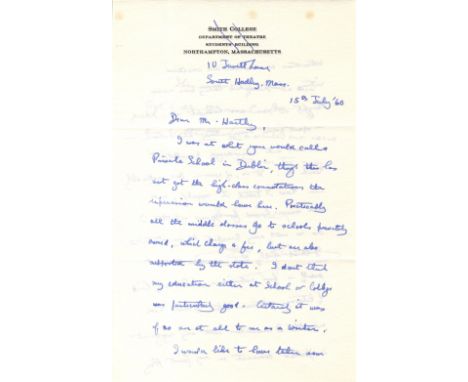 SMITH COLLEGE
DEPARTMENT OF THEATRE
STUDENTS' BUILDING
NORTHAMPTON, MASSACHUSETTS
10 Jewett Lane
South Hadley. Mass.
15th July '60
Dear Mr. Hartley,
I was at what you would call a
Private School in Dublin, though this has
not got the high-class connotations the
expression would have here. Practically
all the middle classes go to schools privately
owned, which charge a fee, but are also
supported by the state. I don't think
my education either at School or College
was particularly good. Certainly it was
of no use at all to me as a writer.
I would like to have taken some